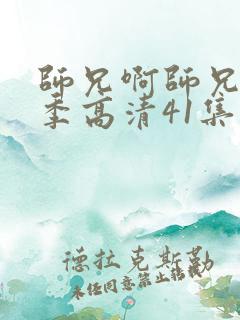 師兄啊師兄
季高清41集
德拉克斯勒
未任同意禁止转载